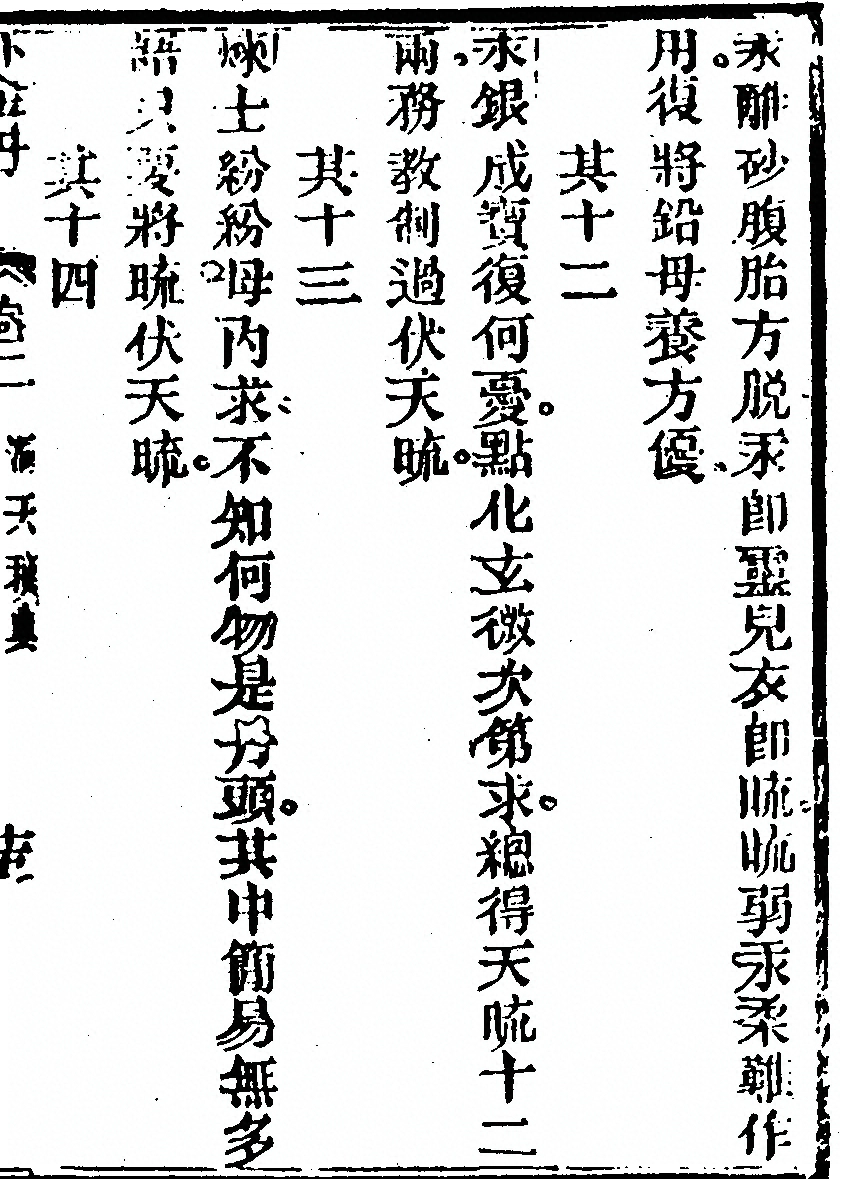 汞離砂腹胎方脱汞卽靈兒衣卽硫硫弱汞柔難作
用復將鉛母養方優
其十二
水銀成寶復何憂點化玄微次第求總得天硫十二
兩務教制過伏天硫
其十三
煉士紛紛母内求不知何物是丹頭其中簡易無多
語只要將硫伏天硫
其十四